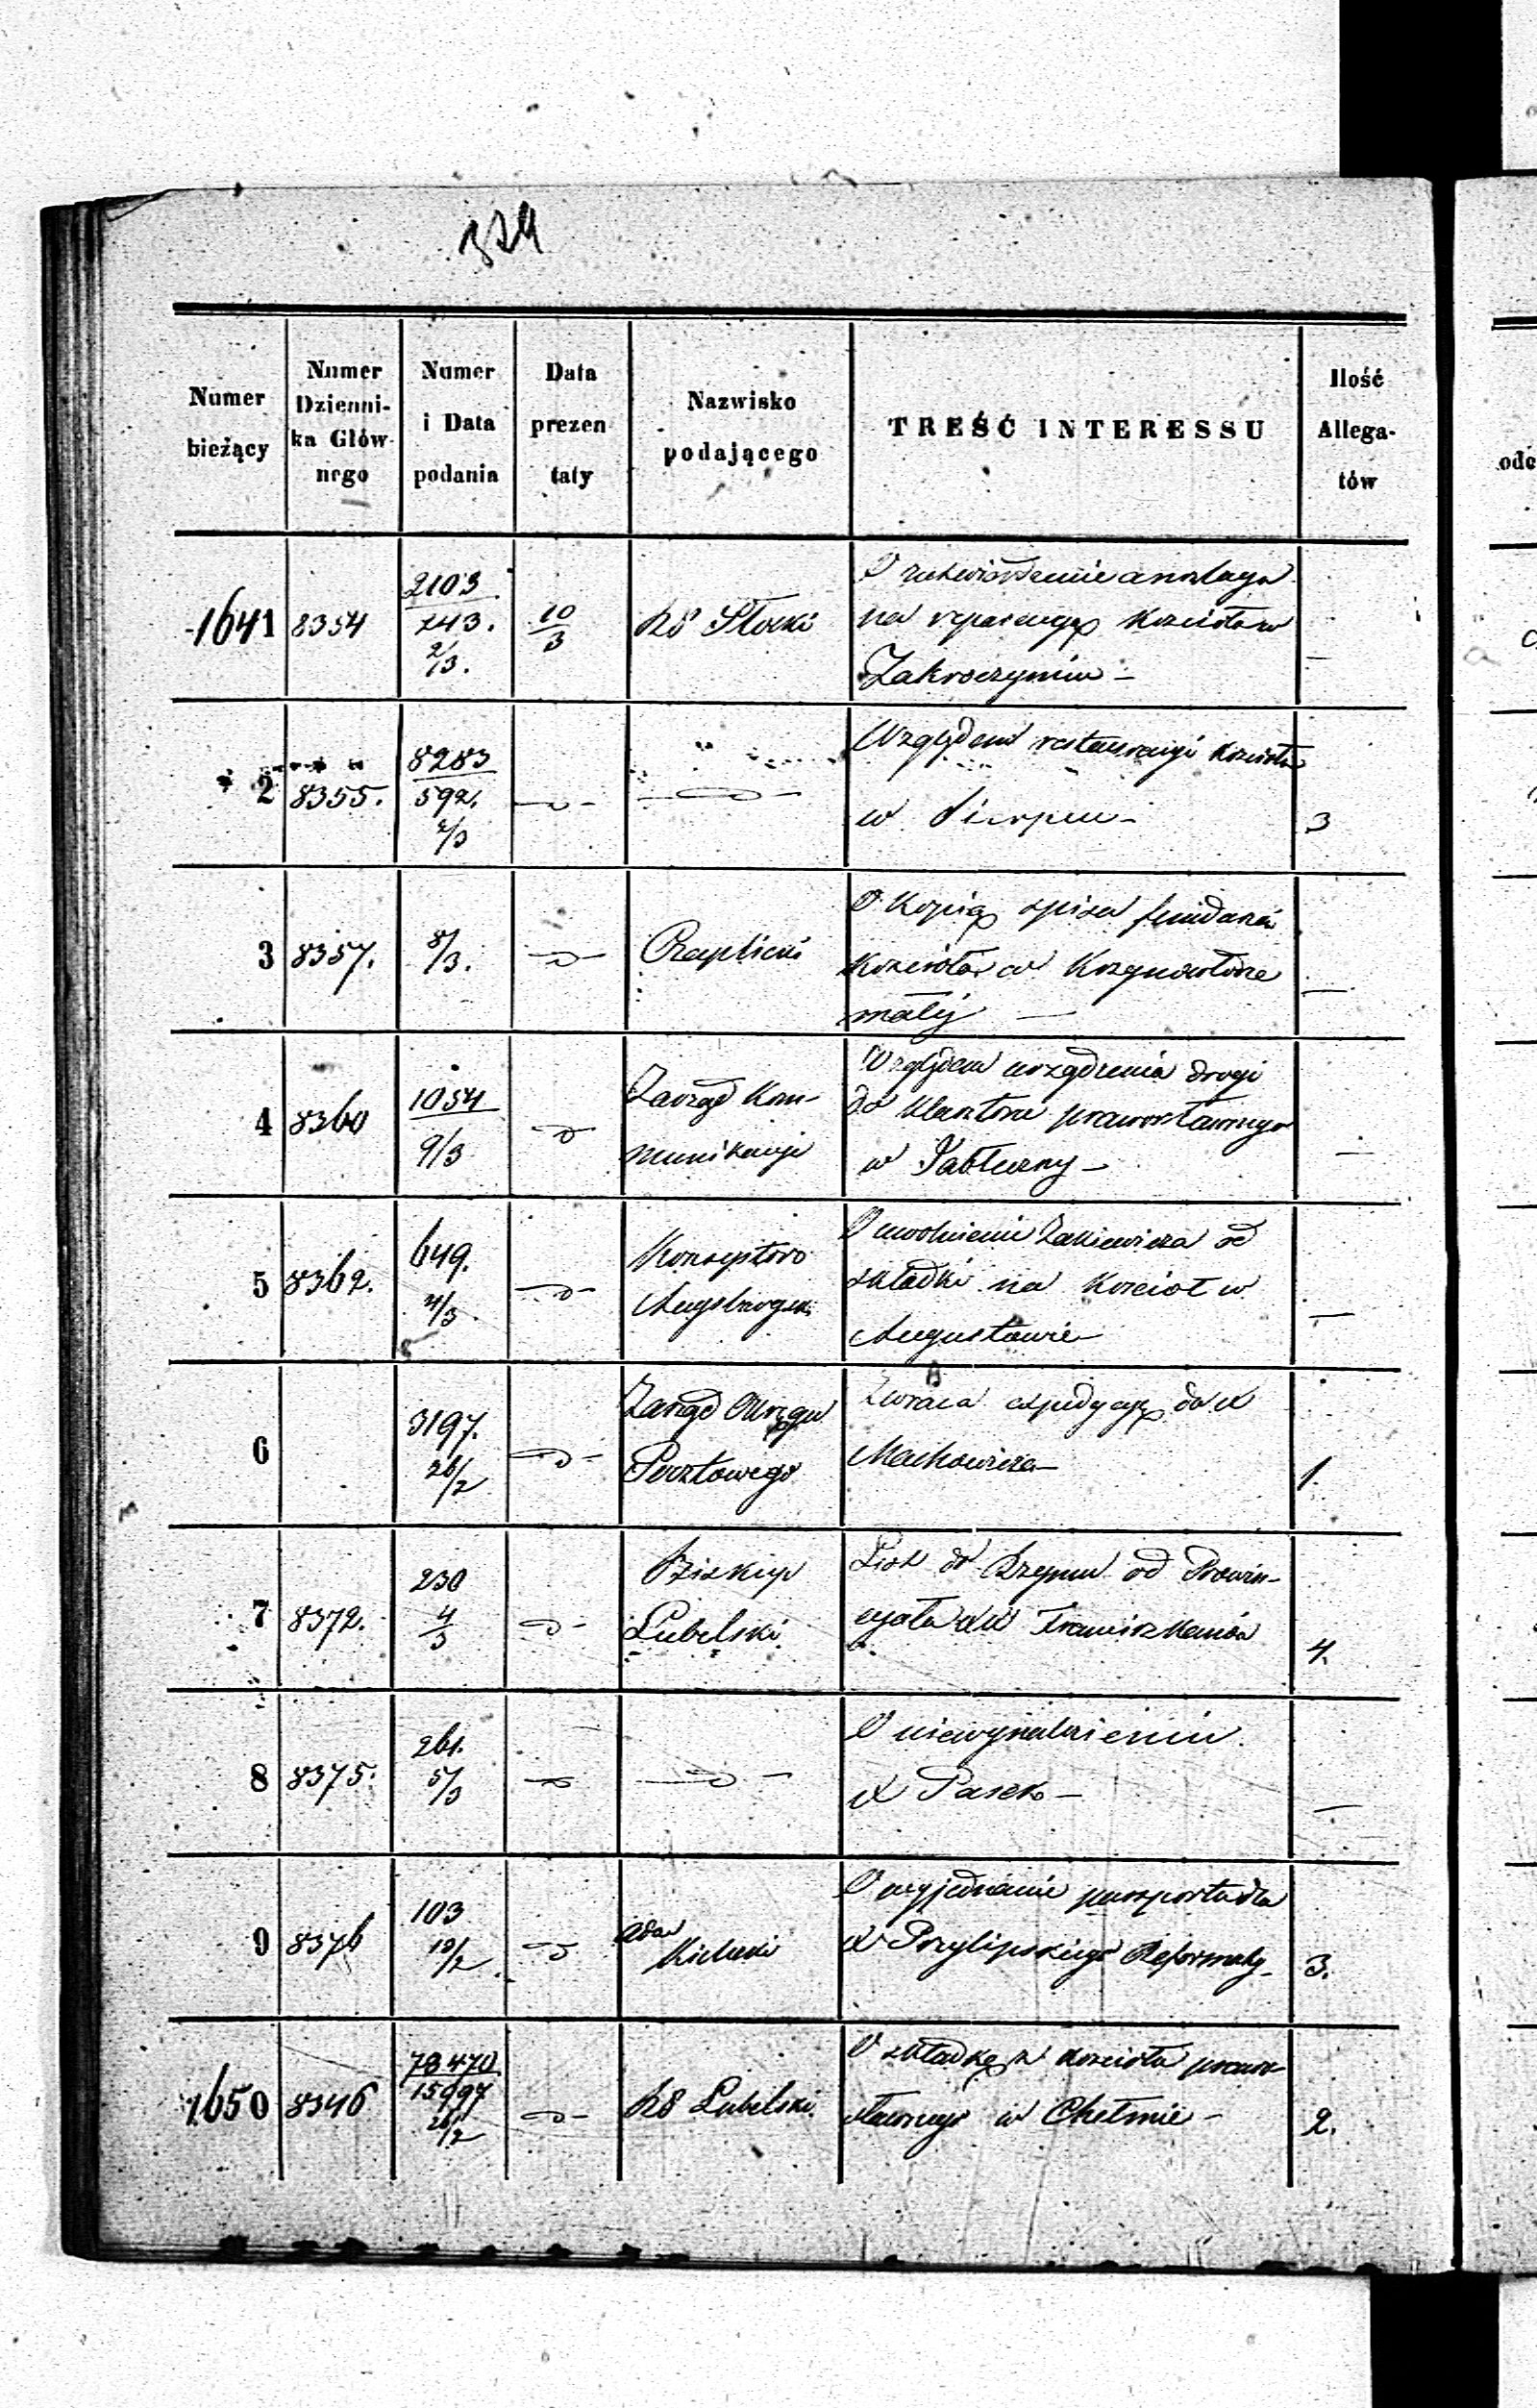 324
Numer bieżący
Numer Dzienni- ka Głów- nego
Numer i Data podania
Data prezen taty
Nazwisko podającego
TREŚĆ INTERESSU
Ilość Allega- tów
ode
1641 8354 2103 243. 2/3. 10/3 RG Płocki
O zatwierdzenie anszlagu
na reparacyą Kościoła w
Zakroczymiu –
2 8355. 8283 592. 2/3 — „ — — „ —
Względem restauracyi Kościoła
w Sierpcu – 3
3 8357. 8/3. — „ —
O Kopią spisu
Kościoła w Krzynowłodze
małej — —
4 8360 1054 9/3 „
Zarząd Kom-
munikacyi
Względem urządzenia drogi
do Klasztoru prawosławnego
w Jabłeczny – —
5 8362. 649. 4/3. — „ —
Konsystorz
Augsburgski
O uwolnieniu od
składki na Kościoł w
Augustowie – —
6 3197. 26/2 — „ —
Zarząd Okręgu
Pocztowego
Zwraca expedycyą do X
Machowicza – 1.
7 8372. 230 4/3 „ –
Biskup
Lubelski
List do Rzymu od Prowin-
cyała XX Franciszkanów 4.
8 8375. 261. 5/3 „ — „ —
O niewynalezieniu
X Pasek – —
9 8376 103 10/2 „
Adm Kielecki
O wyjednanie paszportu dla
X Przylipskiego Reformaty – 3.
1650 8346 78470 15997 26/2 „ – RG Lubelski.
O składkę z Kościoła prawo-
sławnego w Chełmie – 2.